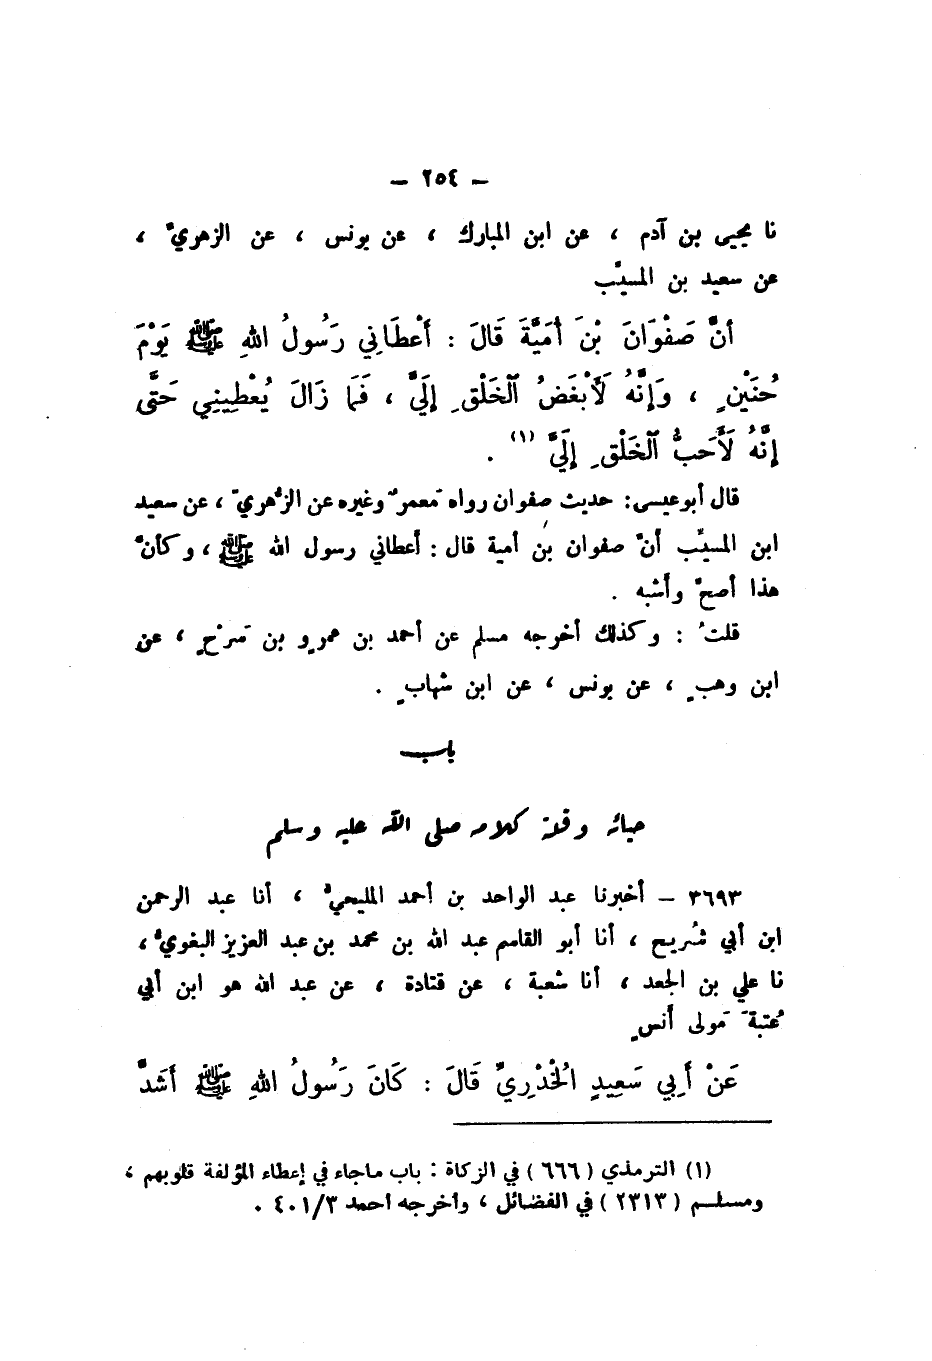 – ٢٥٤ –
نا يحيى بن آدم ، عن ابن المبارك ، عن يونس ، عن الزهريّ ،
عن سعيد بن المسيّب
أنَّ صَفْوَانَ بْنَ أُمَيَّةَ قَالَ : أَعْطَانِي رَسُولُ اللهِ ﷺ يَوْمَ
حُنَيْنٍ ، وَإِنَّهُ لَأَبْغَضُ ٱلْخَلْقِ إِلَيَّ ، فَمَا زَالَ يُعْطِينِي حَتَّى
إِنَّهُ لَأَحَبُّ ٱلْخَلْقِ إِلَيَّ (١) .
قال أبو عيسى : حديث صفوان رواه مَعمرٌ وغيره عن الزُّهريّ ، عن سعيد
ابن المسيِّب أنّ صفوان بن أمية قال : أعطاني رسول الله ﷺ ، وكأنّ
هذا أصحّ وأشبه .
قلتُ : وكذلك أخرجه مسلم عن أحمد بن عمرٍو بن سَرْحٍ ، عن
ابن وهبٍ ، عن يونس ، عن ابن شهابٍ .
باب
حيائه وقلة كلامه صلى الله عليه وسلم
٣٦٩٣ – أخبرنا عبد الواحد بن أحمد المليحيّ ، أنا عبد الرحمن
ابن أبي شُريح ، أنا أبو القاسم عبد الله بن محمد بن عبد العزيز البغويّ ،
نا علي بن الجعد ، أنا شعبة ، عن قتادة ، عن عبد الله هو ابن أبي
عُتبةَ مَولى أنسٍ
عَنْ أَبِي سَعِيدٍ الْخُدْرِيِّ قَالَ : كَانَ رَسُولُ اللهِ ﷺ أَشَدَّ
(١) الترمذي (٦٦٦) في الزكاة : باب ماجاء في إعطاء المؤلفة قلوبهم ،
ومسلم (٢٣١٣) في الفضائل ، وأخرجه أحمد ٤٠١/٣ .